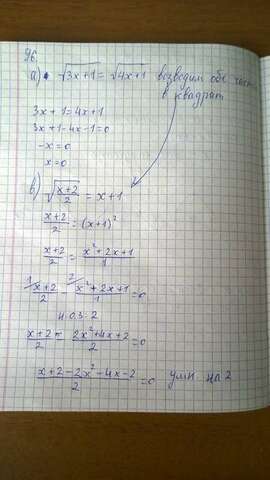 96.
а) √3x+1 = √4x+1 возводим обе части
в квадрат
3x+1=4x+1
3x+1-4x-1=0
-x=0
x=0
в) √x+2/2 = x+1
x+2/2 = (x+1)²
x+2/2 = x²+2x+1/1
¹x+2/2 - ²x²+2x+1/1 =0
н.о.з=2
x+2/2 - 2x²+4x+2/2 =0
x+2-2x²-4x-2/2 =0 умн. на 2